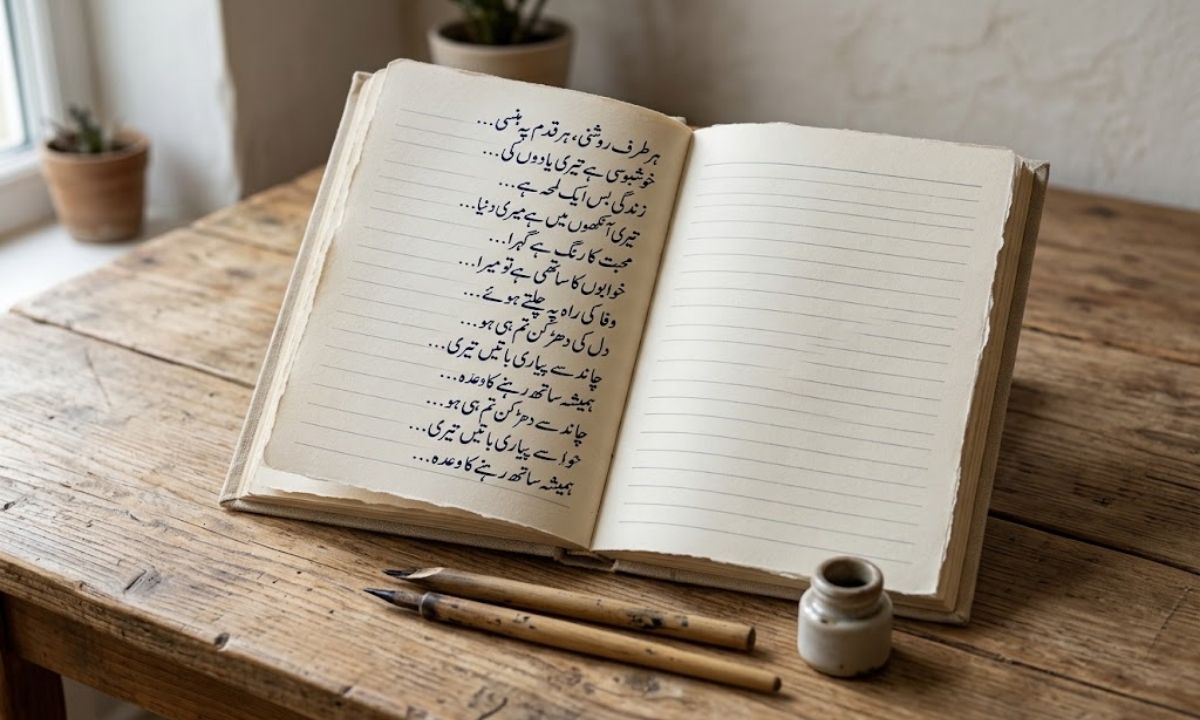 ہر طرف روشنی، ہر قدم پہ ہنسی...
خوشبو سی ہے تیری یادوں کی...
زندگی بس ایک لمحہ ہے...
تیری آنکھوں میں ہے میری دنیا...
محبت کا رنگ ہے گہرا...
خوابوں کا ساتھی ہے تو میرا...
وفا کی راہ پہ چلتے ہوئے...
دل کی دھڑکن تم ہی ہو...
چاند سے پیاری باتیں تیری...
ہمیشہ ساتھ رہنے کا وعدہ...
چاند سے دھڑکن تم ہی ہو...
سے پیاری باتیں تیری...
ہمیشہ ساتھ رہنے کا وعدہ...